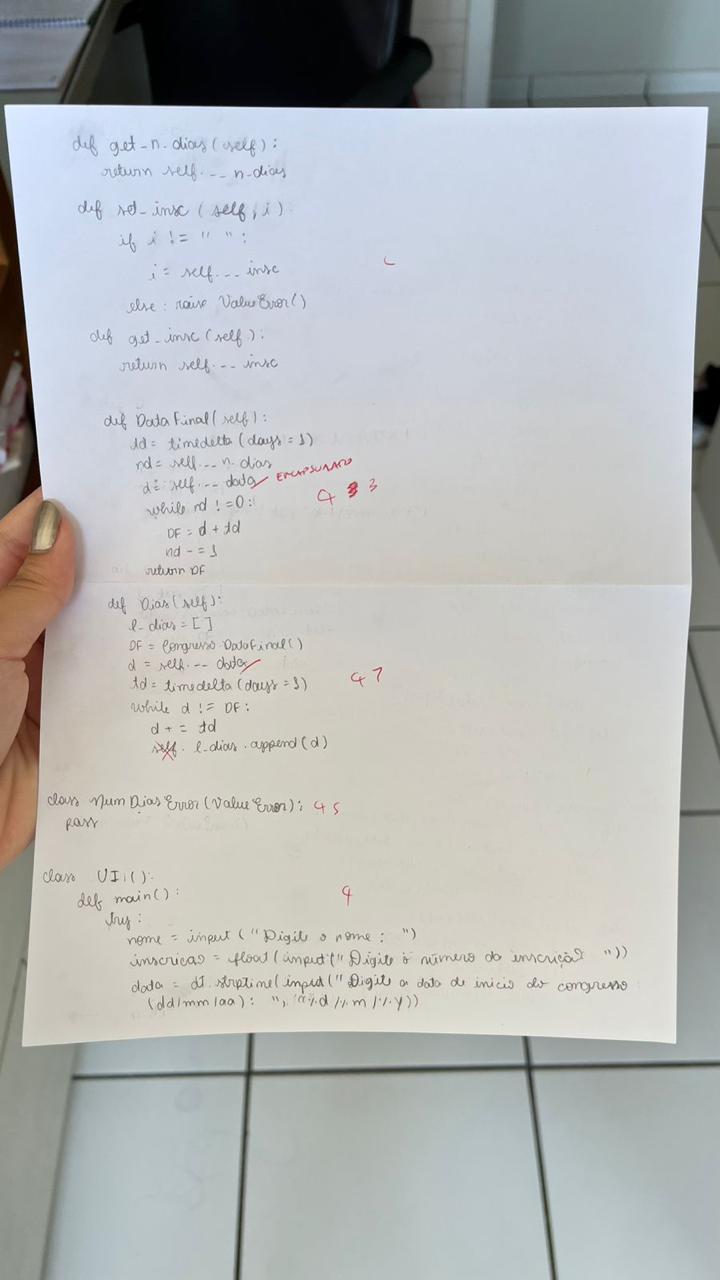 def get_n_dias(self):
return self.__n_dias
def set_insc(self, i)
if i != " ":
i = self.__insc
else: raise ValueError()
def get_insc(self):
return self.__insc
def DataFinal(self):
td = timedelta(days=1)
nd = self.__n_dias
d = self.__data ENCAPSULADO
while nd != 0: 4 3
DF = d + td
nd -= 1
return DF
def Dias(self):
l_dias = []
DF = Congresso.DataFinal()
d = self.__data
td = timedelta(days=1) 4 7
while d != DF:
d += td
self. l_dias.append(d)
class NumDiasError(ValueError): 4 5
pass
class UI():
def main(): 4
try:
nome = input("Digite o nome: ")
inscricao = float(input("Digite o número da inscrição "))
data = dt.strptime(input("Digite a data de inicio do congresso
(dd/mm/aa): ", "%d/%m/%y))